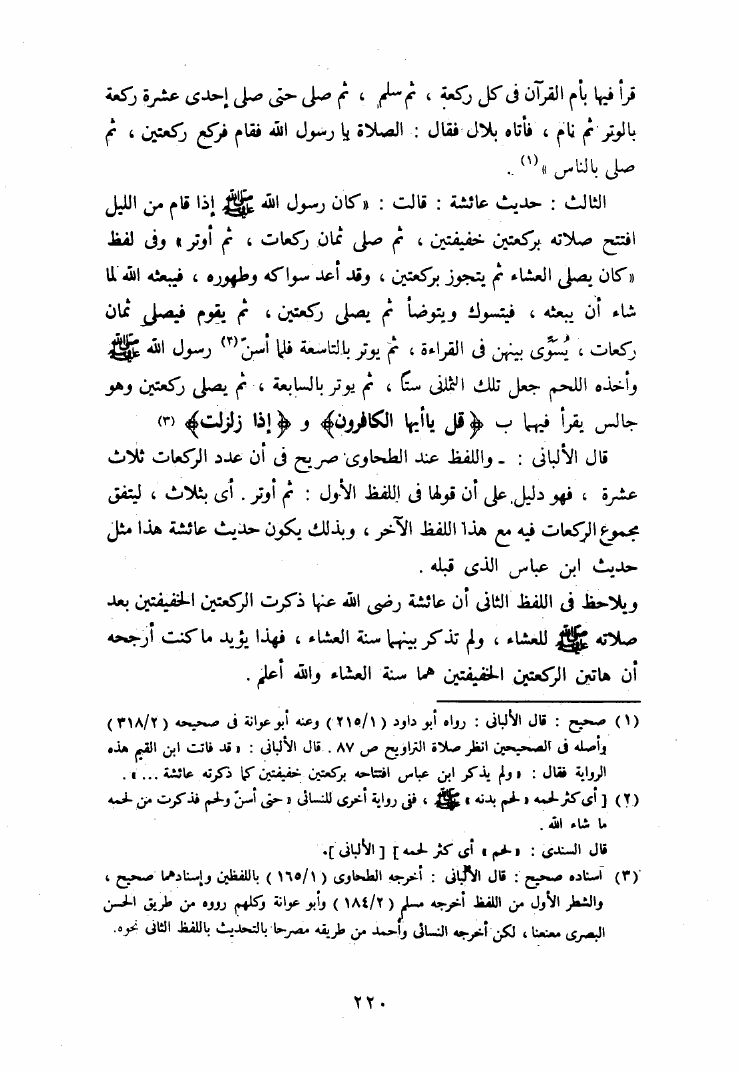 قرأ فيها بأم القرآن فى كل ركعة ، ثم سلم ، ثم صلى حتى صلى إحدى عشرة ركعة
بالوتر ثم نام ، فأتاه بلال فقال : الصلاة يا رسول الله فقام فركع ركعتين ، ثم
صلى بالناس » (١) .
الثالث : حديث عائشة : قالت : «كان رسول الله ﷺ إذا قام من الليل
افتتح صلاته بركعتين خفيفتين ، ثم صلى ثمان ركعات ، ثم أوتر» وفى لفظ
«كان يصلى العشاء ثم يتجوز بركعتين ، وقد أعد سواكه وطهوره ، فيبعثه الله لما
شاء أن يبعثه ، فيتسوك ويتوضأ ثم يصلى ركعتين ، ثم يقوم فيصلى ثمان
ركعات ، يُسَوِّى بينهن فى القراءة ، ثم يوتر بالتاسعة فلما أسنّ (٢) رسول الله ﷺ
وأخذه اللحم جعل تلك الثمانى ستًا ، ثم يوتر بالسابعة ، ثم يصلى ركعتين وهو
جالس يقرأ فيهما ب ﴿قل ياأيها الكافرون﴾ و ﴿إذا زلزلت﴾ (٣)
قال الألبانى : ـ واللفظ عند الطحاوى صريح فى أن عدد الركعات ثلاث
عشرة ، فهو دليل على أن قولها فى اللفظ الأول : ثم أوتر . أى بثلاث ، ليتفق
مجموع الركعات فيه مع هذا اللفظ الآخر ، وبذلك يكون حديث عائشة هذا مثل
حديث ابن عباس الذى قبله .
ويلاحظ فى اللفظ الثانى أن عائشة رضى الله عنها ذكرت الركعتين الخفيفتين بعد
صلاته ﷺ للعشاء ، ولم تذكر بينهما سنة العشاء ، فهذا يؤيد ما كنت أرجحه
أن هاتين الركعتين الخفيفتين هما سنة العشاء والله أعلم .
(١) صحيح : قال الألبانى : رواه أبو داود (٢١٥/١) وعنه أبو عوانة فى صحيحه (٣١٨/٢)
وأصله فى الصحيحين انظر صلاة التراويح ص ٨٧ . قال الألبانى : « قد فاتت ابن القيم هذه
الرواية فقال : « ولم يذكر ابن عباس افتتاحه بركعتين خفيفتين كما ذكرته عائشة ... » .
(٢) [ أى كثر لحمه « لحم بدنه » ﷺ ، ففى رواية أخرى للنسائى « حتى أسنّ ولحم فذكرت من لحمه
ما شاء الله .
قال السندى : « لحم » أى كثر لحمه ] [ الألبانى ].
(٣) اسناده صحيح : قال الألبانى : أخرجه الطحاوى (١٦٥/١) باللفظين وإسنادهما صحيح ،
والشطر الأول من اللفظ أخرجه مسلم (١٨٤/٢) وأبو عوانة وكلهم رووه من طريق الحسن
البصرى معنعنا ، لكن أخرجه النسائى وأحمد من طريقه مصرحا بالتحديث باللفظ الثانى نحوه.
٢٢٠